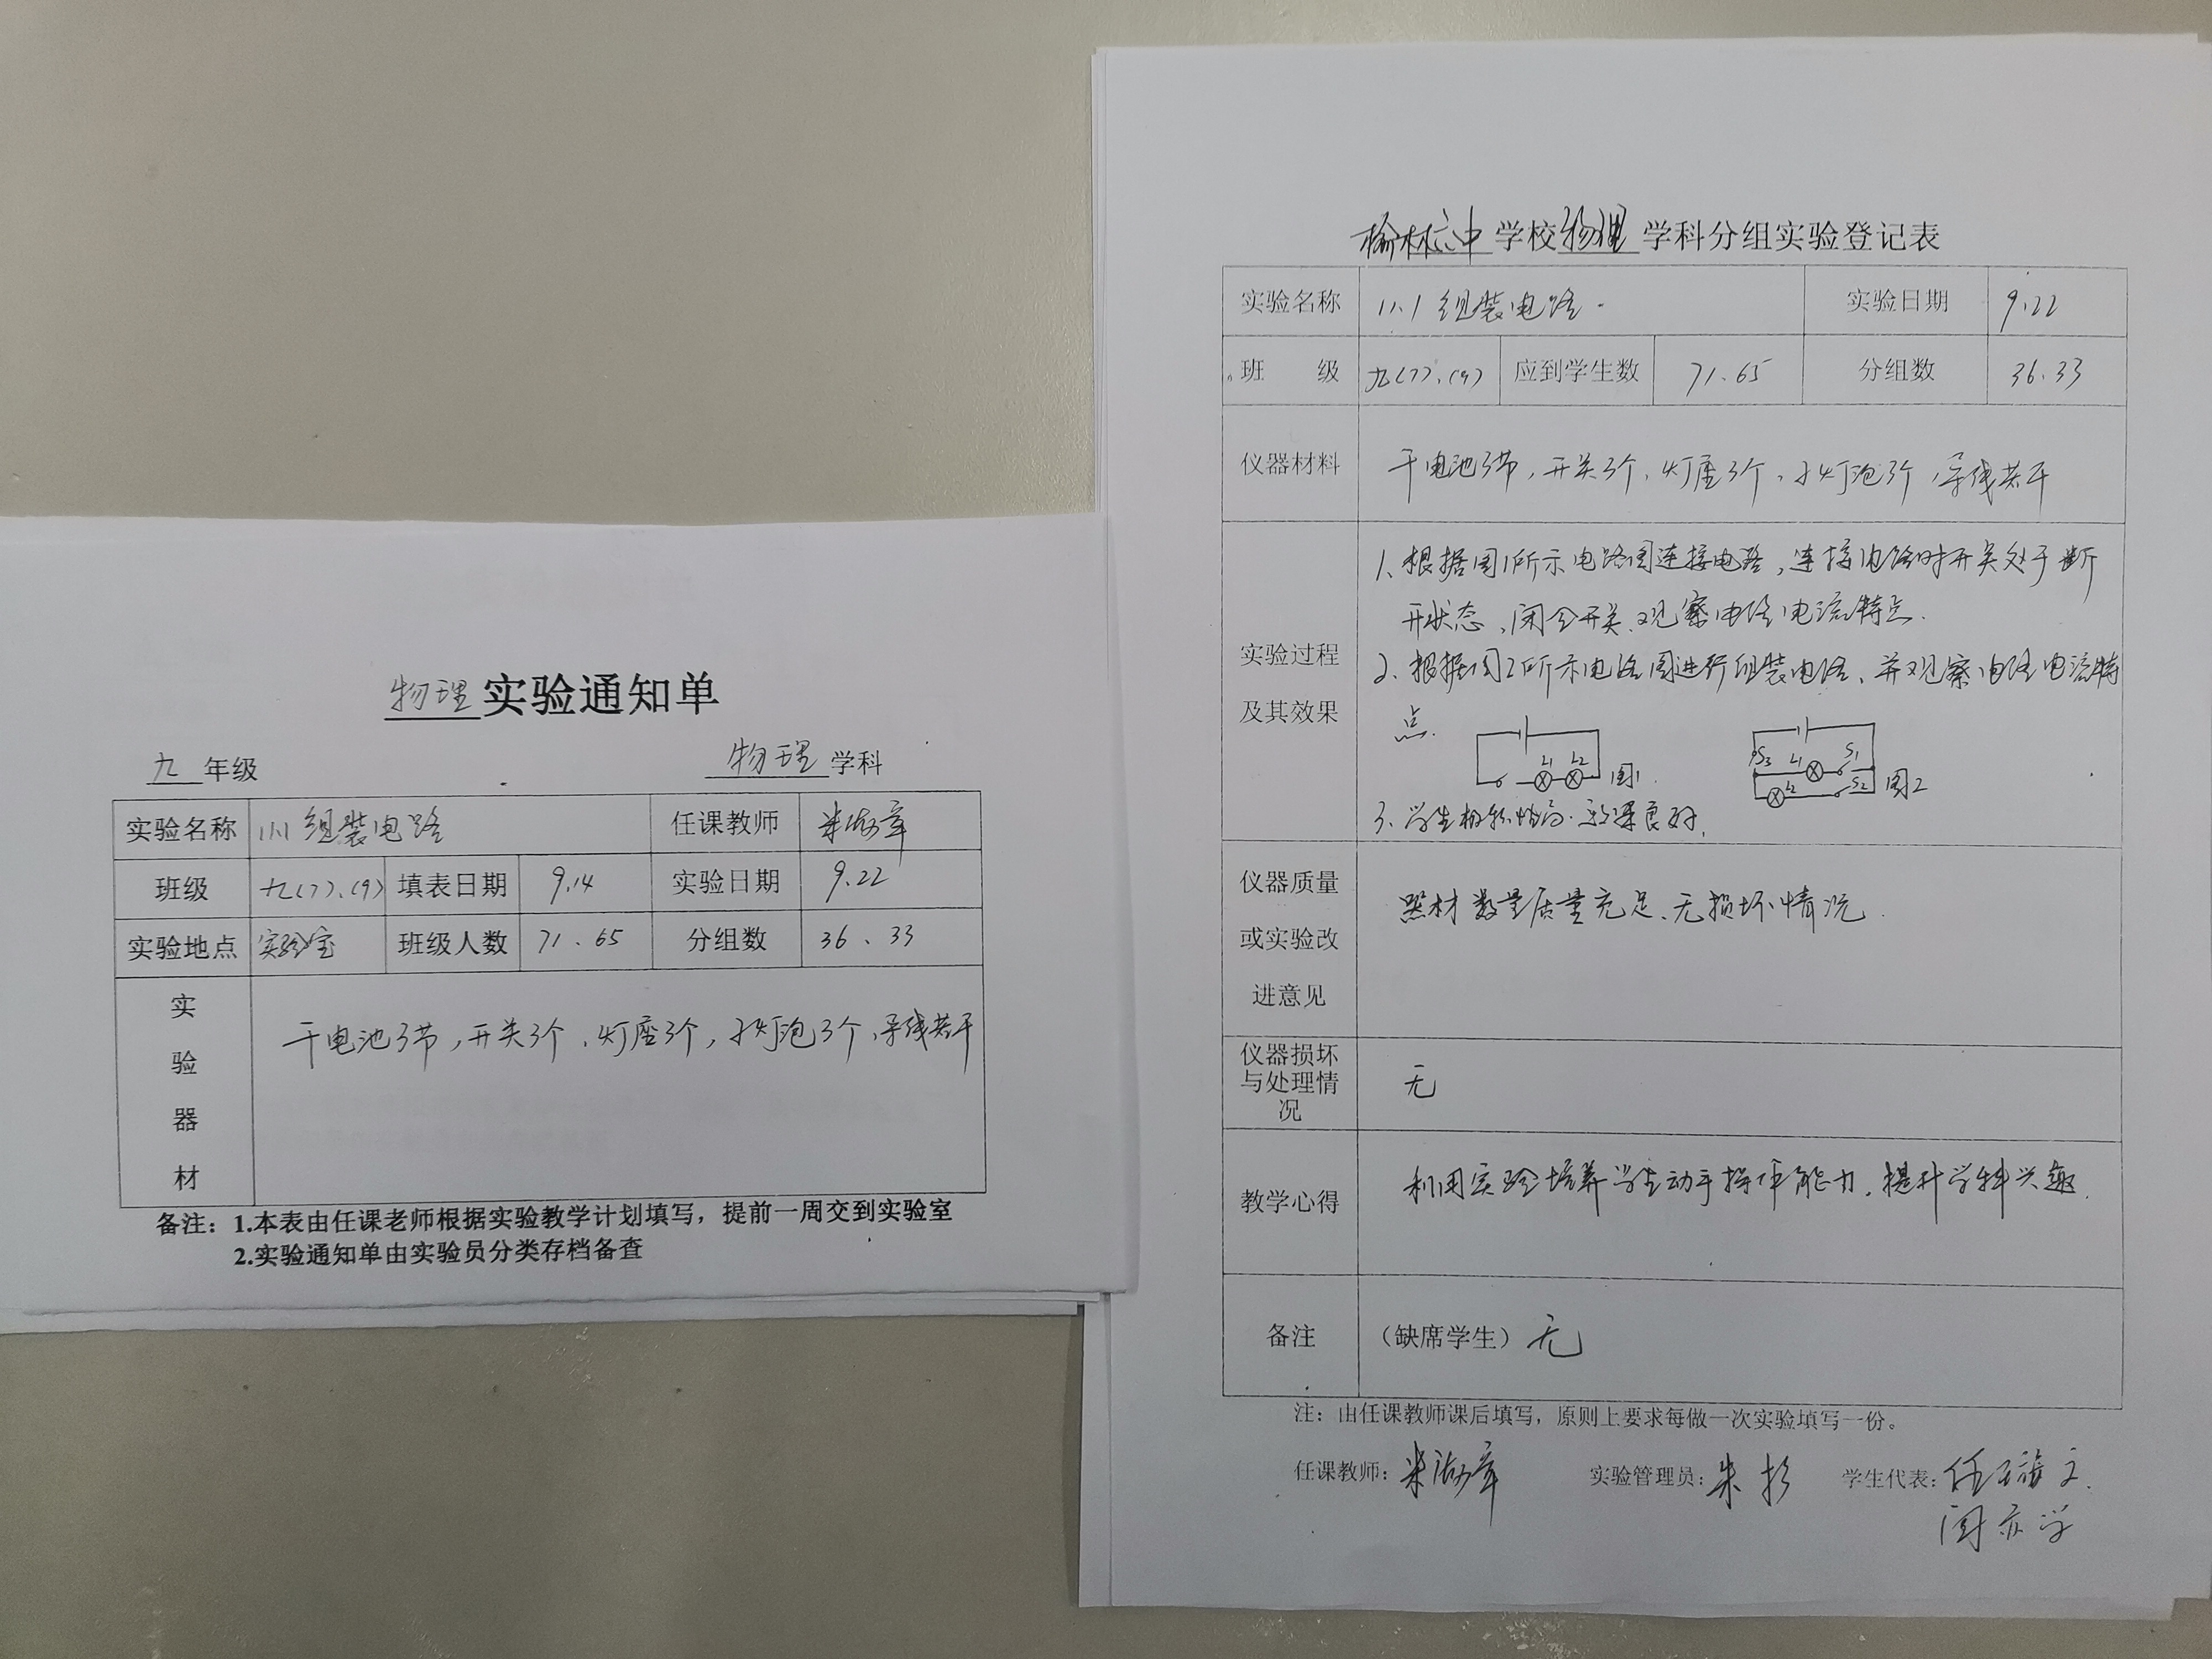 物理 实验通知单
九 年级 物理 学科
实验名称 11.1 组装电路 任课教师 米海章
班级 九(7)、(9) 填表日期 9.14 实验日期 9.22
实验地点 实验室 班级人数 71、65 分组数 36、33
实验器材 干电池3节，开关3个、灯座3个，小灯泡3个、导线若干
备注：1.本表由任课老师根据实验教学计划填写，提前一周交到实验室
2.实验通知单由实验员分类存档备查
榆林六中 学校 物理 学科分组实验登记表
实验名称 11.1 组装电路 实验日期 9.22
班 级 九(7)、(9) 应到学生数 71、65 分组数 36、33
仪器材料 干电池3节，开关3个、灯座3个，小灯泡3个，导线若干
实验过程及其效果
1、根据图1所示电路图连接电路，连接电路时开关处于断
开状态、闭合开关、观察电路电流特点.
2、根据图2所示电路图进行组装电路、并观察电路电流特
点.
L1 L2 图1
S3 L1 S1 L2 S2 图2
3、学生积极性高、效果良好.
仪器质量或实验改进意见 器材数量质量充足、无损坏情况.
仪器损坏与处理情况 无
教学心得 利用实验培养学生动手操作能力，提升学科兴趣.
备注 （缺席学生）无
注：由任课教师课后填写，原则上要求每做一次实验填写一份。
任课教师：米海章 实验管理员：朱杉 学生代表：任 文.